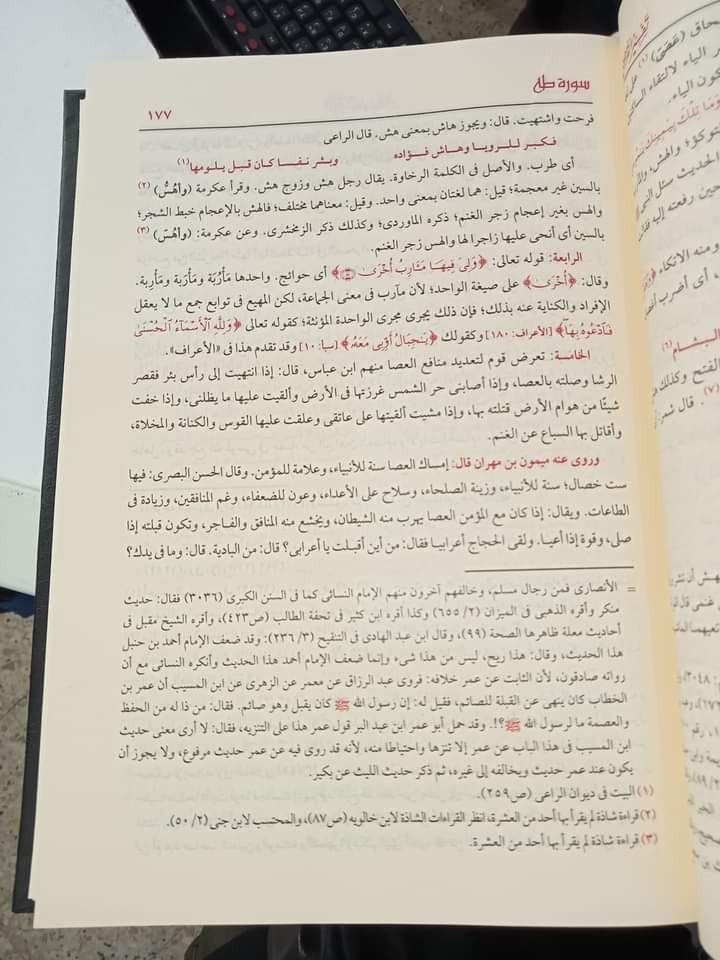 سورة طه
١٧٧
فرحت واشتهيت. قال: ويجوز هاش بمعنى هش. قال الراعى
فكبر للرويا وهاش فؤاده وبشر نفسا كان قبل يلومها(١)
أى طرب. والأصل فى الكلمة الرخاوة. يقال رجل هش وزوج هش. وقرأ عكرمة (وأهُسُّ) (٢)
بالسين غير معجمة؛ قيل: هما لغتان بمعنى واحد. وقيل: معناهما مختلف؛ فالهش بالإعجام خبط الشجر؛
والهس بغير إعجام زجر الغنم؛ ذكره الماوردى؛ وكذلك ذكر الزمخشرى. وعن عكرمة: (وأهُسّ) (٣)
بالسين أى أنحى عليها زاجرا لها والهس زجر الغنم.
الرابعة: قوله تعالى: ﴿وَلِىَ فِيهَا مَـَٔارِبُ أُخْرَىٰ ۝﴾ أى حوائج. واحدها مَأْرُبَة ومَأْرَبة ومأرِبة.
وقال: ﴿أُخْرَىٰ﴾ على صيغة الواحد؛ لأن مآرب فى معنى الجماعة، لكن المهيع فى توابع جمع ما لا يعقل
الإفراد والكناية عنه بذلك؛ فإن ذلك يجرى مجرى الواحدة المؤنثة؛ كقوله تعالى ﴿وَلِلَّهِ ٱلْأَسْمَآءُ ٱلْحُسْنَىٰ
فَٱدْعُوهُ بِهَا﴾ [الأعراف: ١٨٠] وكقولك ﴿يَـٰجِبَالُ أَوِّبِى مَعَهُۥ﴾ [سبأ: ١٠] وقد تقدم هذا فى «الأعراف».
الخامسة: تعرض قوم لتعديد منافع العصا منهم ابن عباس، قال: إذا انتهيت إلى رأس بئر فقصر
الرشا وصلته بالعصا، وإذا أصابنى حر الشمس غرزتها فى الأرض وألقيت عليها ما يظلنى، وإذا خفت
شيئًا من هوام الأرض قتلته بها، وإذا مشيت ألقيتها على عاتقى وعلقت عليها القوس والكنانة والمخلاة،
وأقاتل بها السباع عن الغنم.
وروى عنه ميمون بن مهران قال: إمساك العصا سنة للأنبياء، وعلامة للمؤمن. وقال الحسن البصرى: فيها
ست خصال؛ سنة للأنبياء، وزينة الصلحاء، وسلاح على الأعداء، وعون للضعفاء، وغم المنافقين، وزيادة فى
الطاعات. ويقال: إذا كان مع المؤمن العصا يهرب منه الشيطان، ويخشع منه المنافق والفاجر، وتكون قبلته إذا
صلى، وقوة إذا أعيا. ولقى الحجاج أعرابيا فقال: من أين أقبلت يا أعرابى؟ قال: من البادية. قال: وما فى يدك؟
= الأنصارى فمن رجال مسلم، وخالفهم آخرون منهم الإمام النسائى كما فى السنن الكبرى (٣٠٣٦) فقال: حديث
منكر وأقره الذهبى فى الميزان (٢/ ٦٥٥) وكذا أقره ابن كثير فى تحفة الطالب (ص٤٢٣)، وأقره الشيخ مقبل فى
أحاديث معلة ظاهرها الصحة (٩٩)، وقال ابن عبد الهادى فى التنقيح (٣/ ٢٣٦): وقد ضعف الإمام أحمد بن حنبل
هذا الحديث، وقال: هذا ريح، ليس من هذا شىء وإنما ضعف الإمام أحمد هذا الحديث وأنكره النسائى مع أن
رواته صادقون، لأن الثابت عن عمر خلافه: فروى عبد الرزاق عن معمر عن الزهرى عن ابن المسيب أن عمر بن
الخطاب كان ينهى عن القبلة للصائم، فقيل له: إن رسول الله ﷺ كان يقبل وهو صائم. فقال: من ذا له من الحفظ
والعصمة ما لرسول الله ﷺ؟!. وقد حمل أبو عمر ابن عبد البر قول عمر هذا على التنزيه، فقال: لا أرى معنى حديث
ابن المسيب فى هذا الباب عن عمر إلا تنزها واحتياطا منه، لأنه قد روى فيه عن عمر حديث مرفوع، ولا يجوز أن
يكون عند عمر حديث ويخالفه إلى غيره، ثم ذكر حديث الليث عن بكير.
(١) البيت فى ديوان الراعى (ص٢٥٩).
(٢) قراءة شاذة لم يقرأ بها أحد من العشرة، انظر القراءات الشاذة لابن خالويه (ص٨٧)، والمحتسب لابن جنى (٢/ ٥٠).
(٣) قراءة شاذة لم يقرأ بها أحد من العشرة.